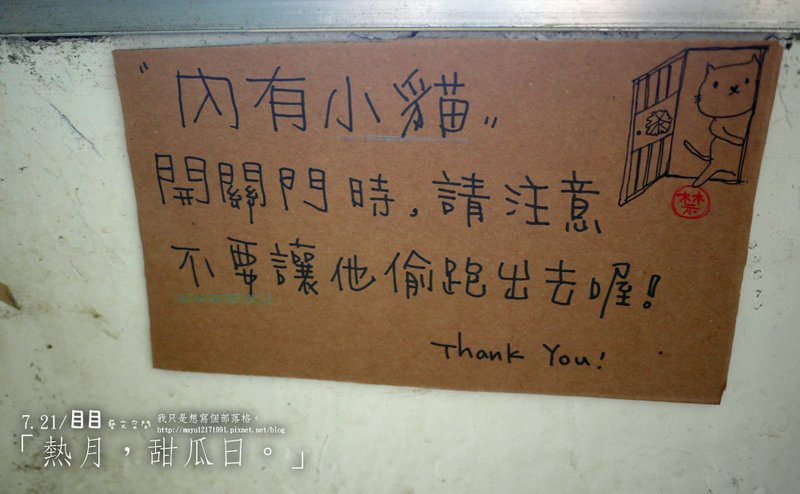 "內有小貓"
開關門時,請注意
不要讓他偷跑出去喔!
Thank You!
禁
7.21/目目藝文空間 我只是想寫個部落格。
http://mayu12171991.pixnet.net/blog
「熱月,甜瓜日。」